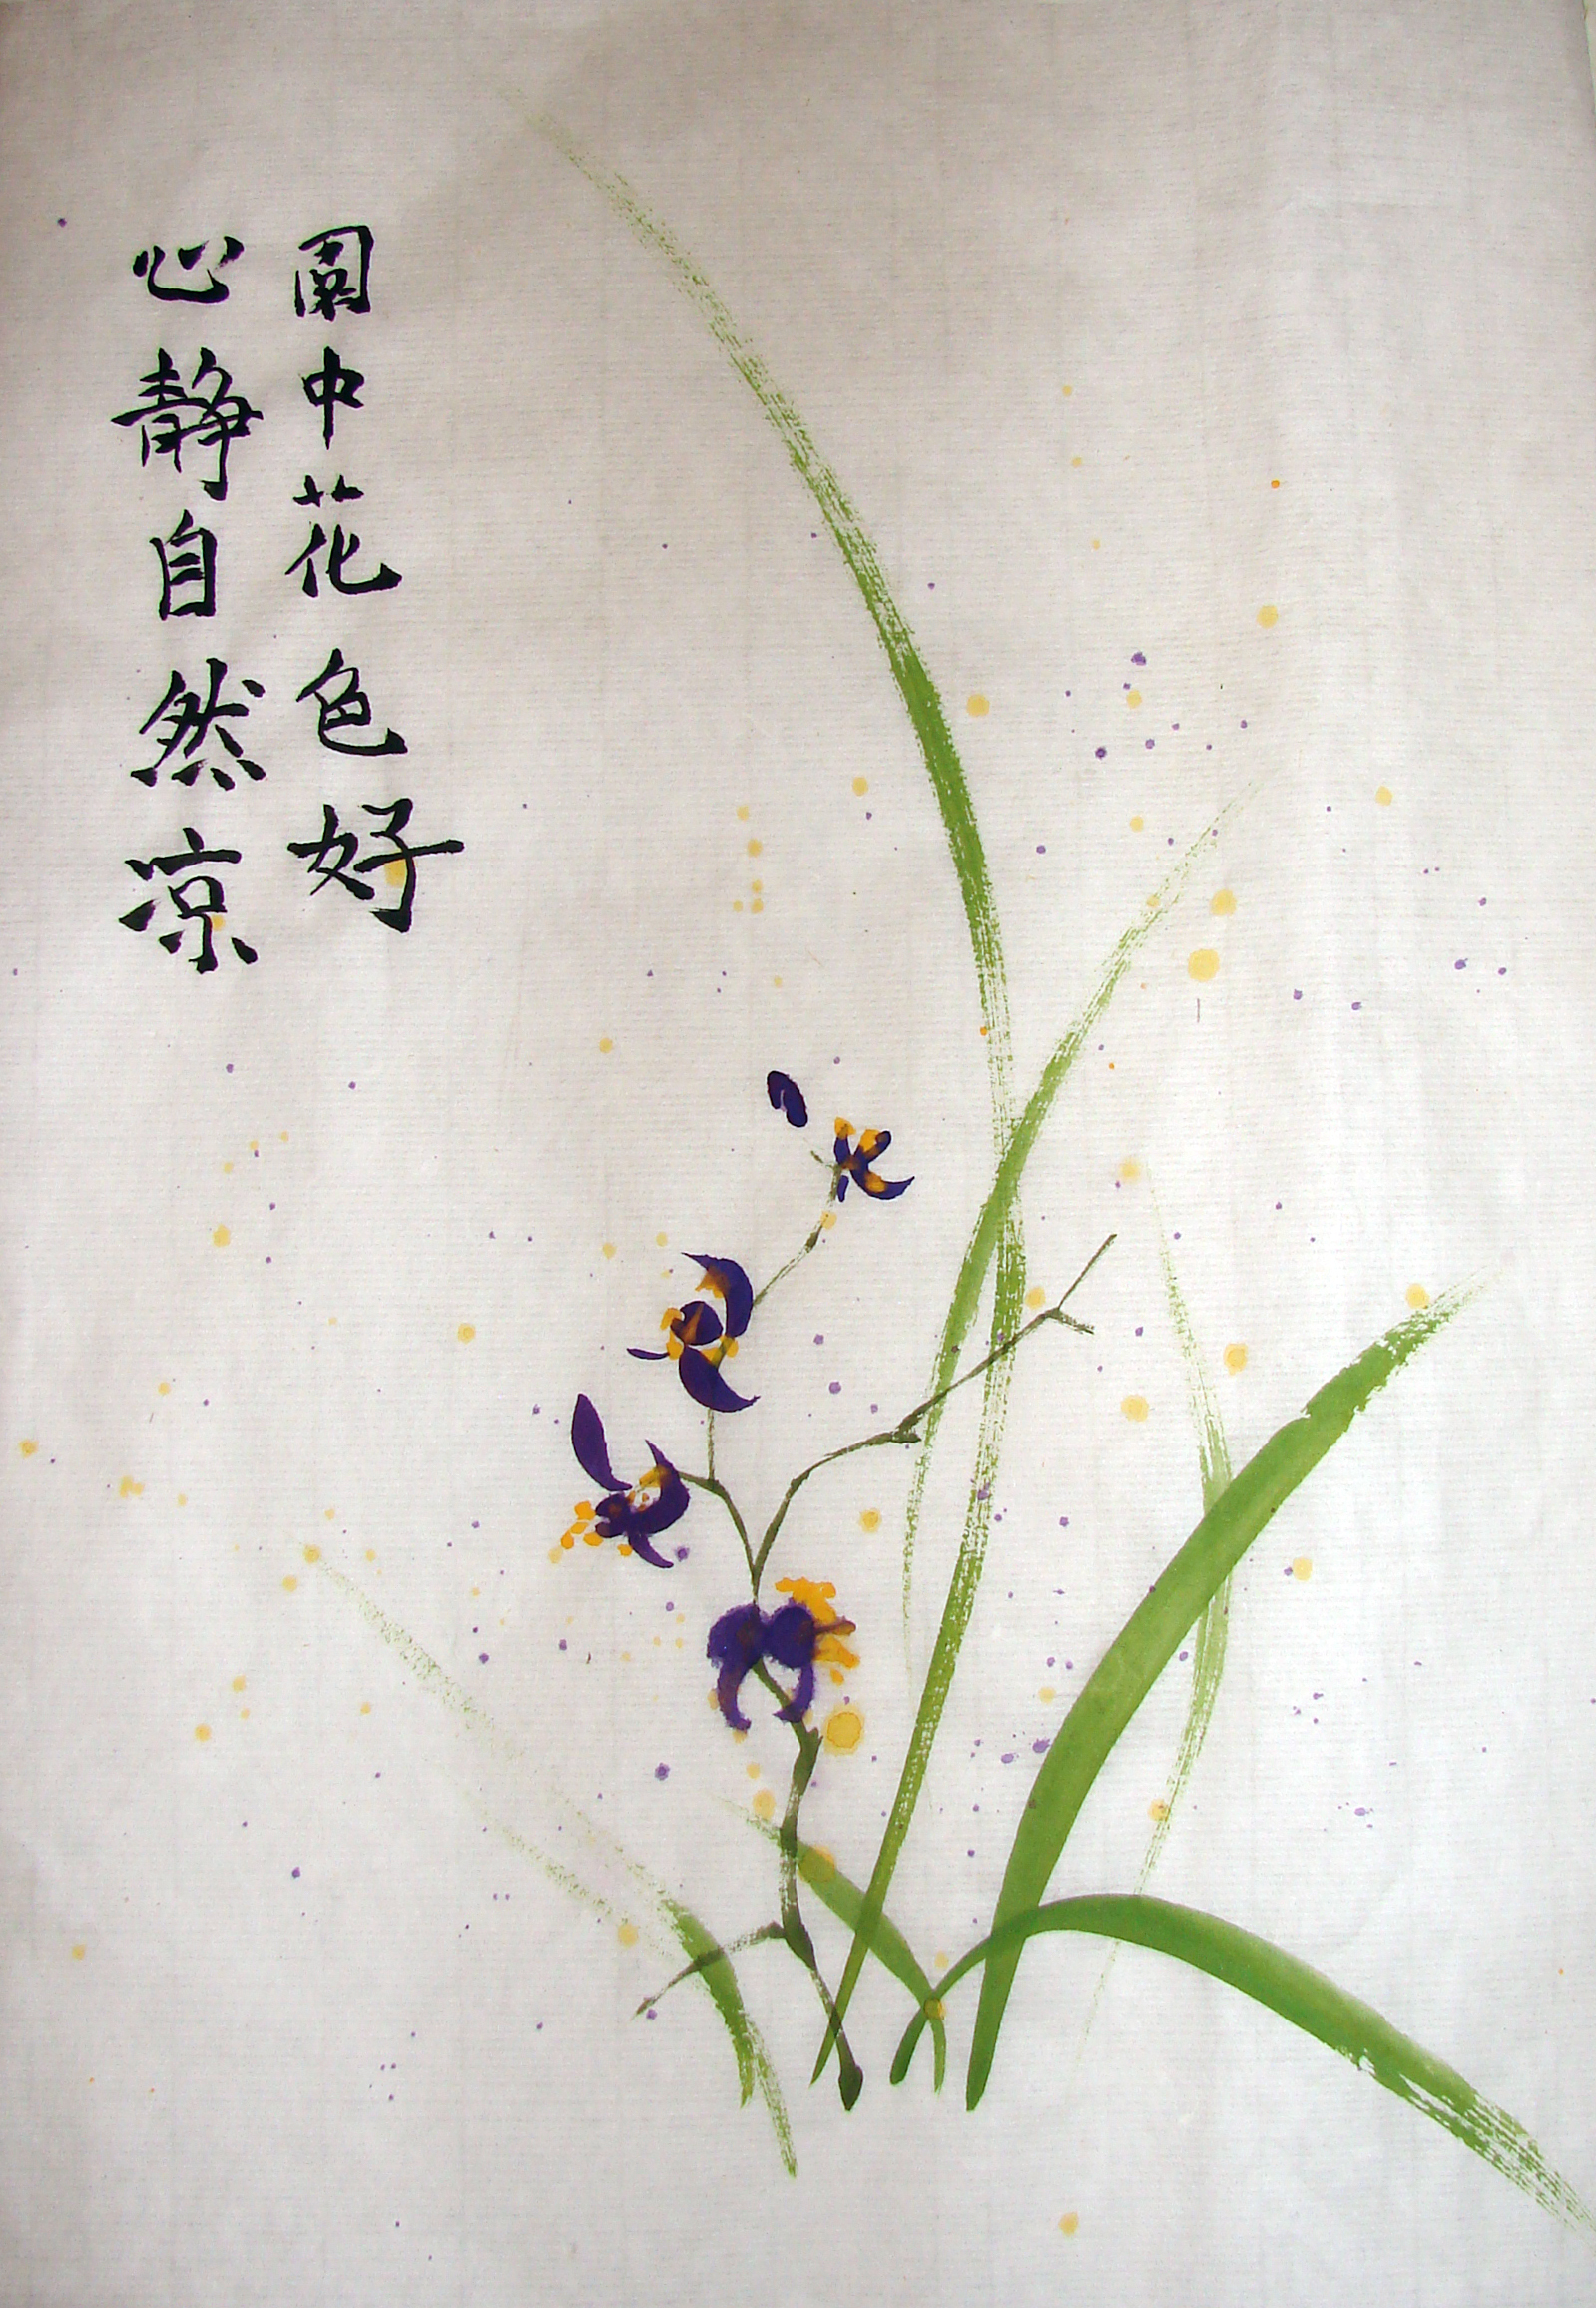 園中花色好
心静自然凉